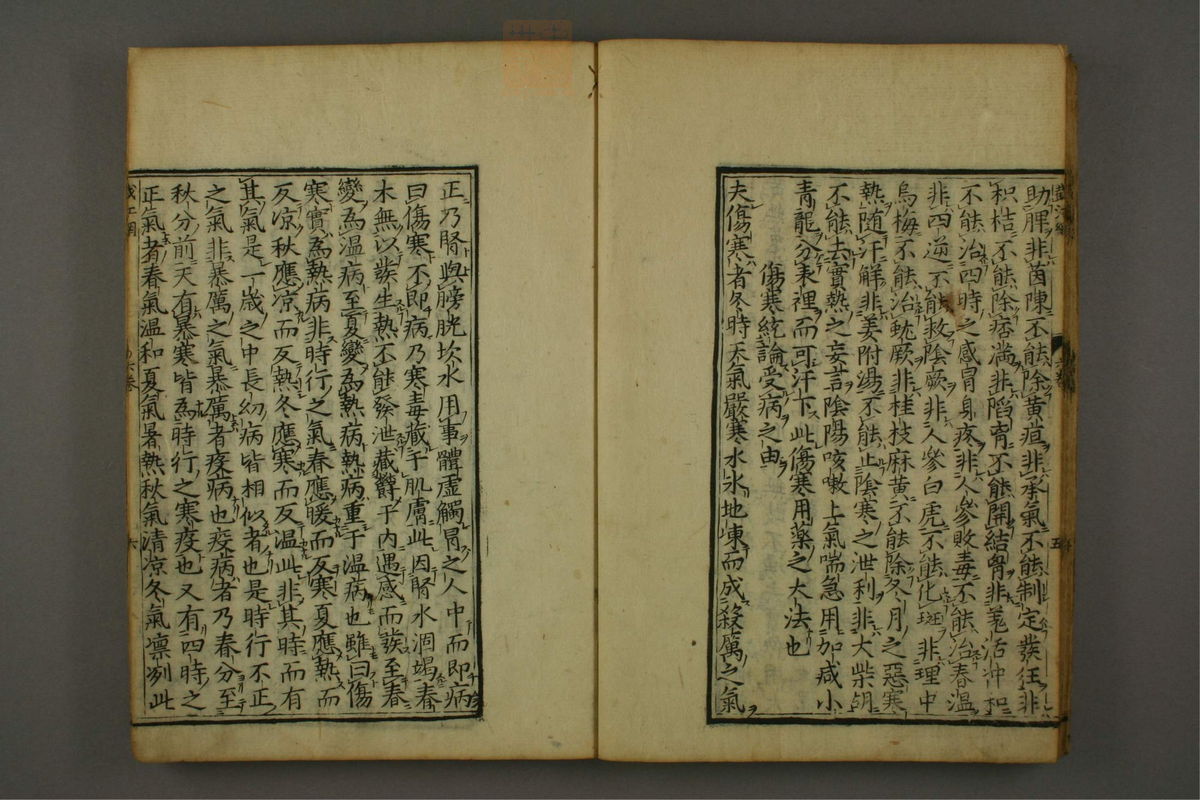 助脾非茵陳不能除黄疸非承氣不能制定發狂非
枳桔不能除痞滿非陷胷不能開結胷非羗活沖和
不能治四時之感冒身疼非人參敗毒不能治春温
非四逆不能救陰厥非人參白虎不能化斑非理中
烏梅不能治蚘厥非桂枝麻黄不能除冬月之惡寒
熱随汗解非姜附湯不能止陰寒之泄利非大柴胡
不能去實熱之妄言陰陽咳嗽上氣喘急用加减小
青龍分表裡而可汗下此傷寒用藥之大法也
傷寒統論受病之由
夫傷寒者冬時天氣嚴寒水氷地凍而成殺厲之氣
正乃腎與膀胱坎水用事體虚觸冒之人中而即病
曰傷寒不即病乃寒毒藏于肌膚此因腎水涸竭春
木無以發生熱不能發泄藏欝于内遇感而發至春
變為温病至夏變為熱病熱病重于温病也雖曰傷
寒實為熱病非時行之氣春應暖而反寒夏應熱而
反凉秋應凉而反熱冬應寒而反温此非其時而有
其氣是一歳之中長幼病皆相似者也是時行不正
之氣非暴厲之氣暴厲者疫病也疫病者乃春分至
秋分前天有暴寒皆為時行之寒疫也又有四時之
正氣者春氣温和夏氣暑熱秋氣清凉冬氣凛冽此